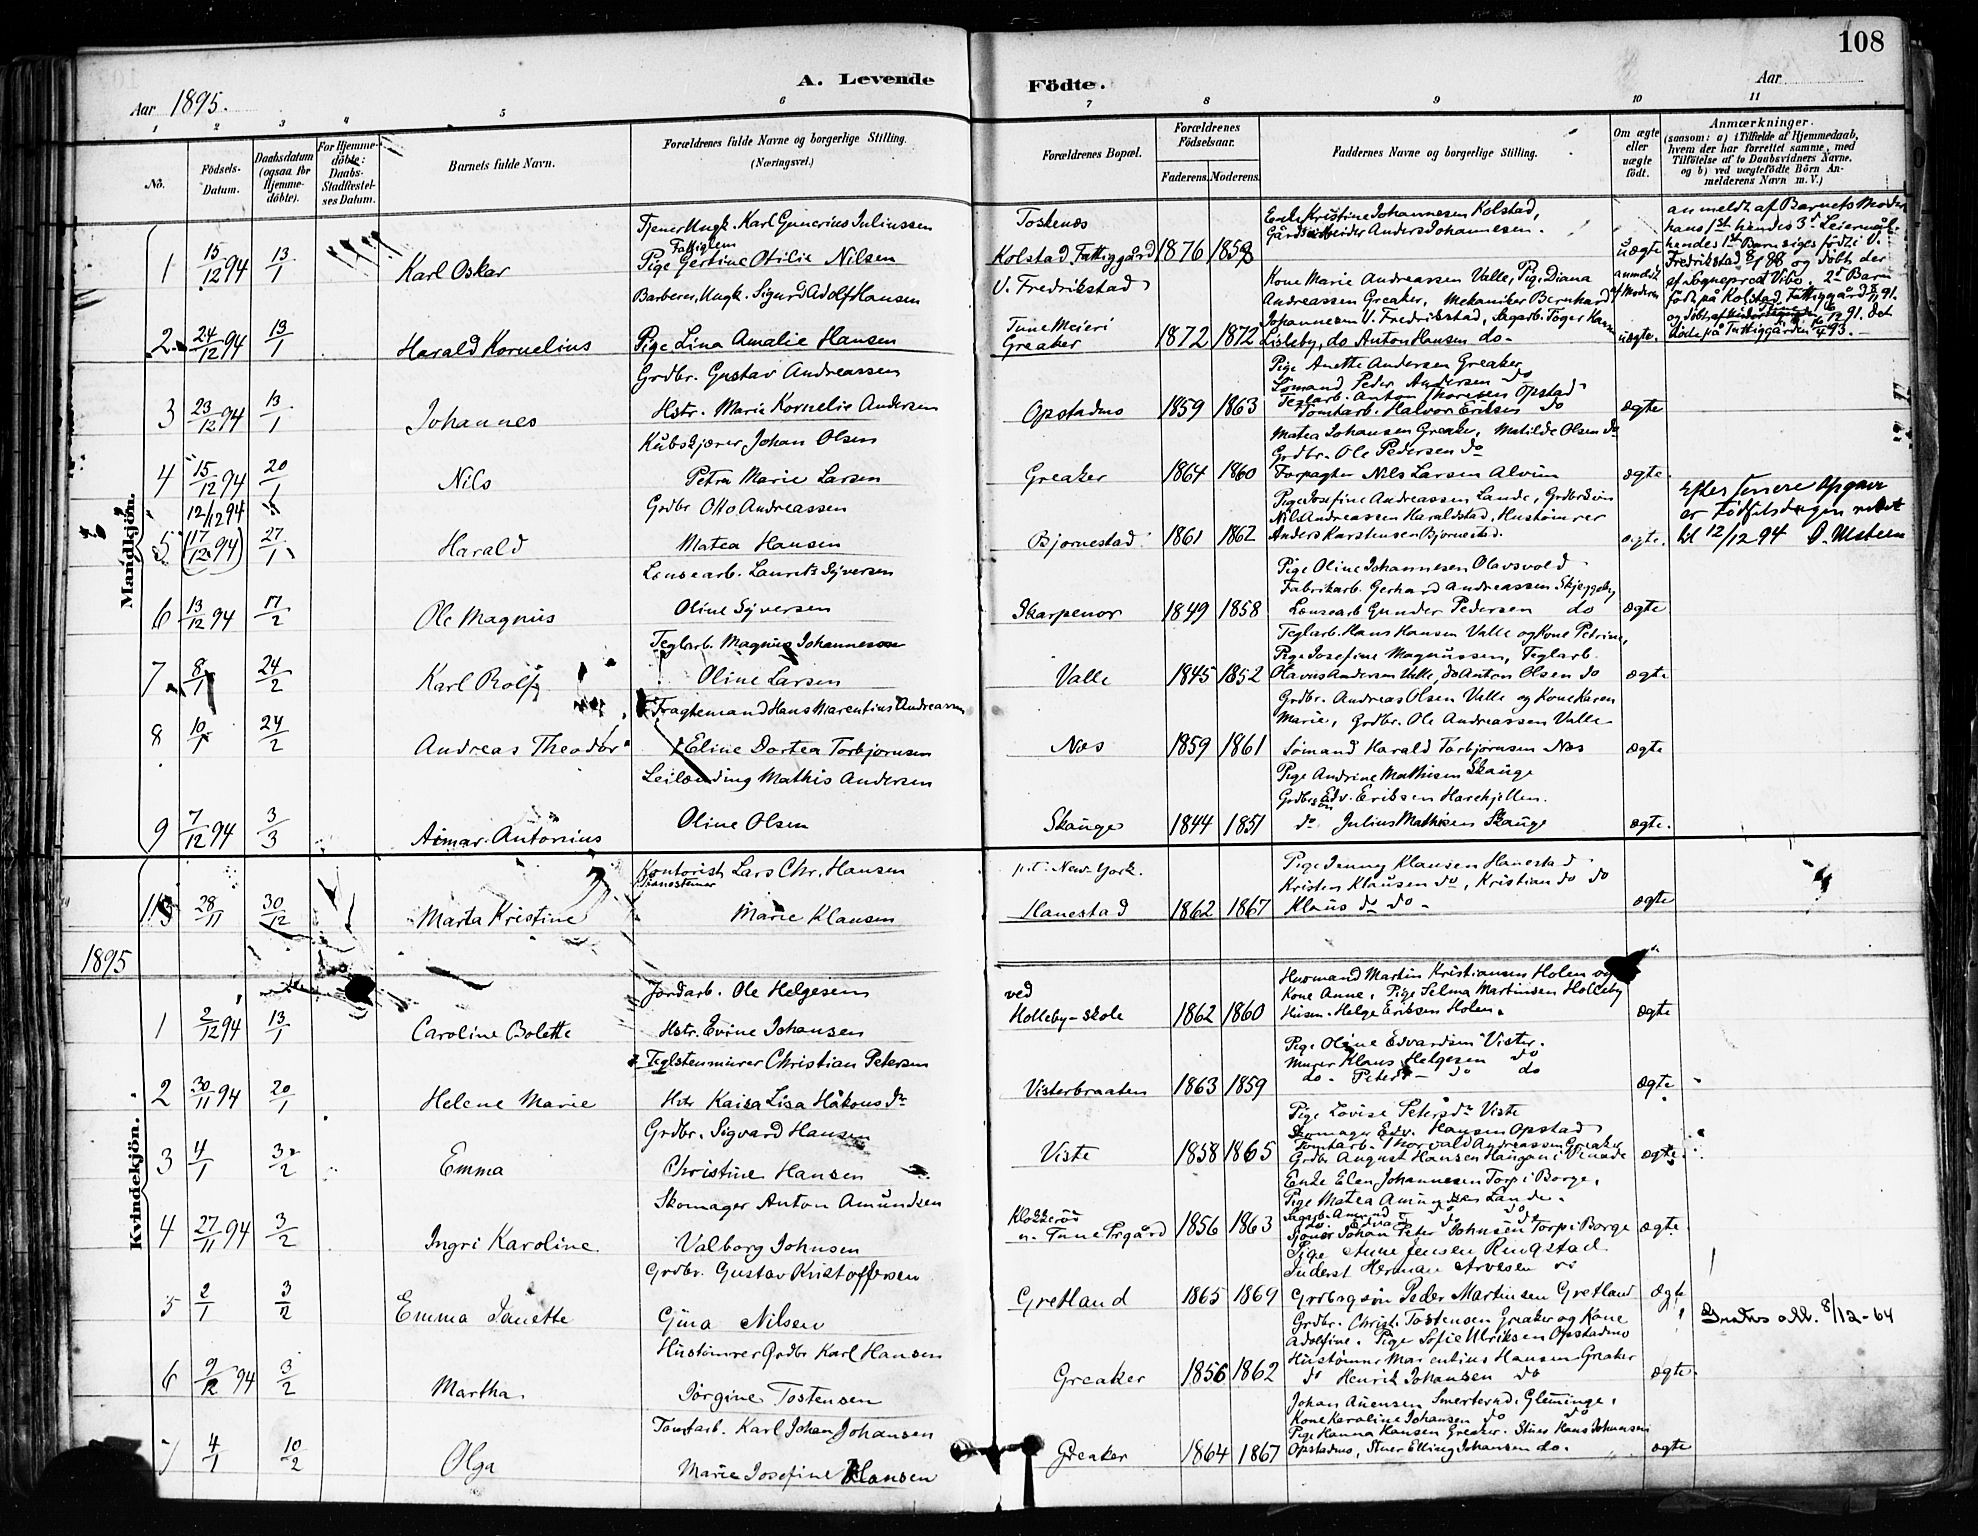 108
A. Levende Födte.
Aar 1895.
Aar
1 2 3 4 5 6 7 8 9 10 11
No.
Födsels-Datum.
Daabsdatum (ogsaa for Hjemme-döbte).
For Hjemme-döbte: Daabs-Stadfæstel-ses Datum.
Barnets fulde Navn.
Forældrenes fulde Navne og borgerlige Stilling. (Næringsvei.)
Forældrenes Bopæl.
Forældrenes Födselsaar.
Faderens. Moderens.
Faddernes Navne og borgerlige Stilling.
Om ægte eller uægte födt.
Anmærkninger.
(saasom: a) i Tilfælde af Hjemmedaab, hvem der har forrettet samme, med Tilföielse af to Daabsvidners Navne, og b) ved uægtefödte Börn Anmelderens Navn m. V.)
Mandkjön.
Tjener Ungk. Karl Gunerius Juliussen
Toskenæs
Enke Kristine Johannesen Kolstad,
Gårdsarbeider Anders Johannesen.
1 15/12 94 13/1 Karl Oskar
Fattiglem
Pige Gertine Otilie Nilsen
Kolstad Fattiggård 1876 1858
uægte
anmeldt af Moderen
anmeldt af Barnets Moder
hans 1st hendes 3d Leiermål.
hendes 1st Barn siges födt i V.
Fredrikstad 88 og döbt der
af Sogneprest Vibo. 2d Barn
födt på Kolstad Fattiggård 91.
Barberer, Ungk. Sigurd Adolf Hansen
V. Fredrikstad
Kone Marie Andreassen Valle, Pige Diana
Andreassen Greaker, Mekaniker Bernhard
Johannesen V. Fredrikstad, Sagarb. Töger
2 24/12 94 13/1 Harald Kornelius
Pige Lina Amalie Hansen
Tune Meieri
Greaker 1872 1872 Lisleby, do Anton Hansen do uægte.
Grdbr. Gustav Andreassen
Pige Anette Andersen Greaker
Sömand Peder Andersen do
Teglarb. Anton Thoresen Opstad
3 23/12 94 13/1 Johannes
Hstr. Marie Kornelie Andersen
Opstadmo 1859 1863 Tomtarb. Halvor Eriksen do ægte
Kubskjærer Johan Olsen
Matea Johansen Greaker, Matilde Olsen do
Grdbr. Ole Pedersen do
4 15/12 94 20/1 Nils
Petra Marie Larsen
Greaker 1864 1860 Forpagter Nils Larsen Alvim ægte
12/12 94
Grdbr Otto Andreassen
Pige Josefine Andreassen Lande, Grdbrsön
Nils Andreassen Haraldstad, Hustömrer
5 (17/12 94) 27/1 Harald
Matea Hansen
Bjornestad 1861 1862 Anders Karstensen Bjornestad. ægte.
er födselsdagen rettet
til 12/12 94
Lensearb. Laurits Syversen
Pige Oline Johannesen Olavsvold
Fabrikarb. Gerhard Andreassen Skjeggeby
6 13/12 94 17/2 Ole Magnus
Oline Syversen
Skarpenor 1849 1858 Lensearb Gunder Pedersen do ægte
Teglarb. Magnus Johannesen
Teglarb. Hans Hansen Valle og Kone Petrine,
Pige Josefine Magnussen, Teglarb.
7 8/1 24/2 Karl Rolf
Oline Larsen
Valle 1845 1852 Olavus Andersen Valle, do Anton Olsen do ægte
Fragtemand Hans Marentius Andreassen
Grdbr. Andreas Olsen Valle og Kone Karen
Marie, Grdbr. Ole Andreassen Valle
8 10/1 24/2 Andreas Theodor
Eline Dortea Torbjornsen
Næs 1859 1861 Sømand Harald Torbjornsen Næs ægte
Leilænding Mathis Andersen
Pige Andrine Mathisen Skauge
Grdbrsön Edv. Eriksen Harehjellen.
9 7/12 94 3/3 Aimar Antonius
Oline Olsen
Skauge 1844 1851 do Julius Mathisen Skauge ægte.
Kontorist Lars Chr. Hansen
p.t. New-York.
Pige Jenny Klausen Hanestad
Kristen Klausen do, Kristian do do
28/11 30/12 Marta Kristine
Marie Klausen
Hanestad 1862 1867 Klaus do do ægte
1895
Kvindekjön.
Jordarb. Ole Helgesen
ved
Husmand Martin Kristiansen Holen og
Kone Anne, Pige Selma Martinsen Holleby
1 2/12 94 13/1 Caroline Bolette
Hstr. Evine Johansen
Holleby-skole 1862 1860 Husm. Helge Eriksen Holen. ægte
Teglstensmurer Christian Petersen
Pige Oline Edvardsen Vister.
Murer Klaus Helgesen do
2 30/11 94 20/1 Helene Marie
Hstr Kaisa Lisa Håkonsdr
Visterbraaten 1863 1859 do. Peter do do ægte
Grdbr. Sigvard Hansen
Pige Lovise Petersdr Viste
Skomager Edv. Hansen Opstad
Tomtarb. Thorvald Andreassen Greaker
3 4/1 3/2 Emma
Christine Hansen
Viste 1858 1865 Grdbr August Hansen Haugan i Vinode ægte
Skomager Anton Amundsen
Enke Elen Johannesen Torp i Borge,
Pige Matea Amundsen Lande.
4 27/11 94 3/2 Ingri Karoline
Valborg Johnsen
Tune Prgård 1856 1863 Johan Peter Johnsen Torp i Borge ægte
Grdbr. Gustav Kristoffersen
Pige Anne Jensen Ringstad
Inderst Herman Arvesen
5 2/1 3/2 Emma Janette
Gina Nilsen
Gretland 1865 1869 Grdbrsön Peder Martinsen Gretland ægte
8/12-64
Hustömrer Grdbr Karl Hansen
Grdbr. Christ. Tostensen Greaker og Kone
Adolfine. Pige Sofie Ulriksen Opstadmo
Hustömrer Marentius Hansen Greaker
6 9/12 94 3/2 Martha
Jörgine Tostensen
Greaker 1856 1862 do Henrik Johansen do ægte
Tomtarb. Karl Johan Johansen
Johan Auensen Smertu i Glemminge,
Kone Karoline Johansen do do
Pige Hanna Hansen Greaker. Stuer Hans Johansen
7 4/1 10/2 Olga
Marie Josefine Hansen
Greaker 1864 1867 Opstadmo, Stuer Elling Johansen do. ægte